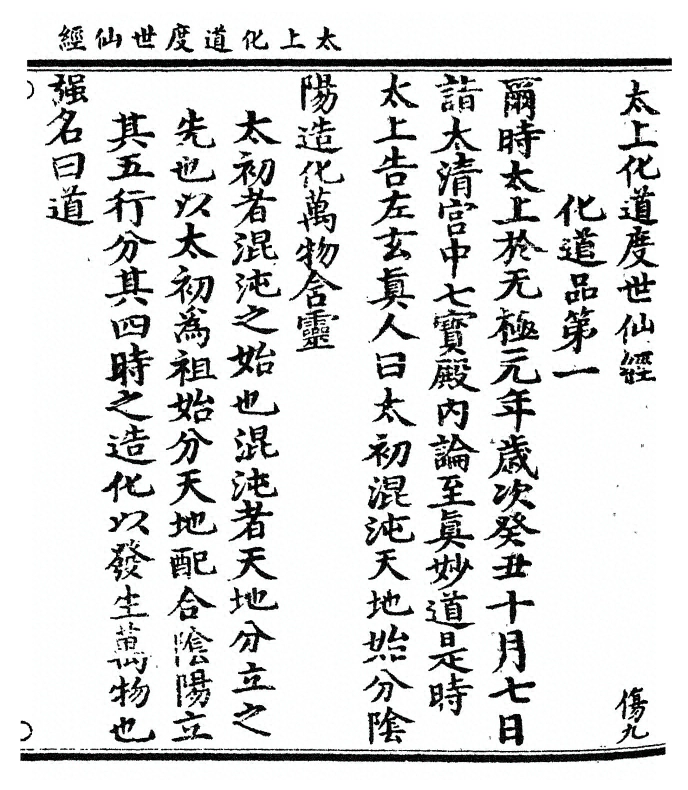 太上化道度世仙經
太上化道度世仙經
傷九
化道品第一
爾時太上於无極元年歲次癸丑十月七日
詣太清宫中七寶殿內論至眞妙道是時
太上告左玄眞人曰太初混沌天地始分陰
陽造化萬物含靈
太初者混沌之始也混沌者天地分立之
先也以太初爲祖始分天地配合陰陽立
其五行分其四時之造化以發生萬物也
強名曰道